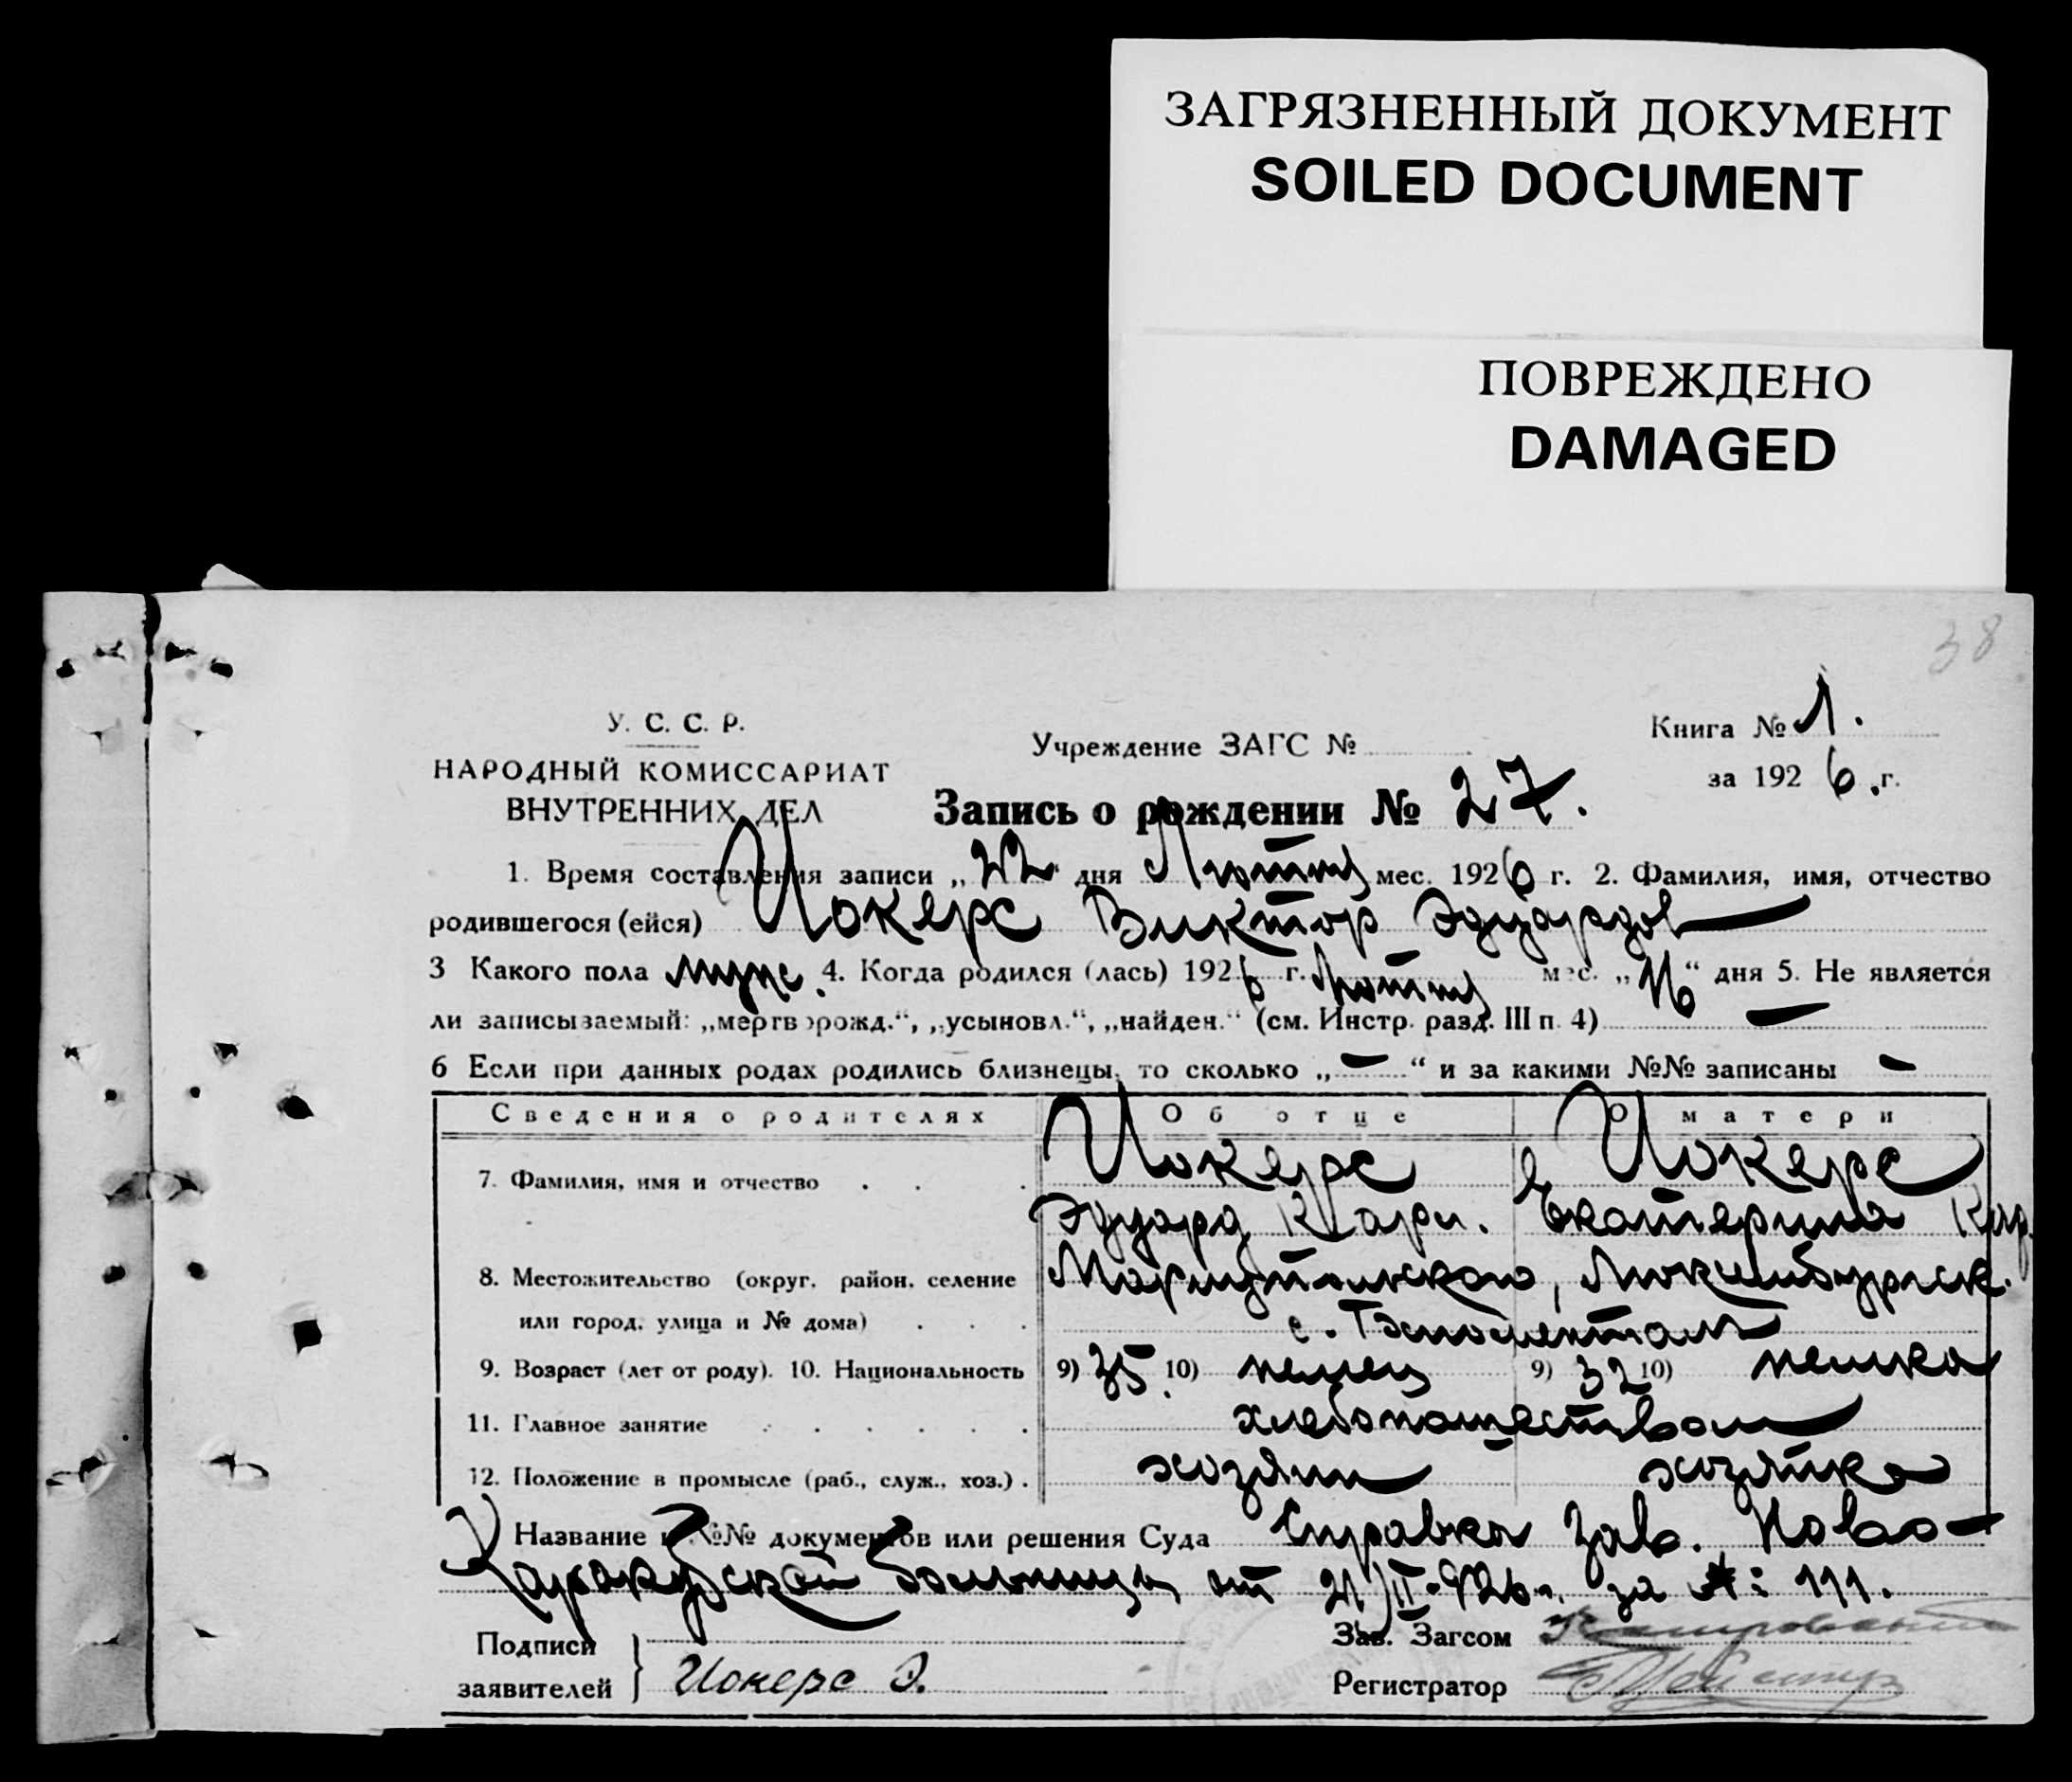 ЗАГРЯЗНЕННЫЙ ДОКУМЕНТ
SOILED DOCUMENT
ПОВРЕЖДЕНО
DAMAGED
38
У. С. С. Р.
НАРОДНЫЙ КОМИССАРИАТ
ВНУТРЕННИХ ДЕЛ
Учреждение ЗАГС №
Книга № 1.
за 1926 г.
Запись о рождении № 27.
1. Время составления записи „22“ дня Лютый мес. 1926 г. 2. Фамилия, имя, отчество
родившегося (ейся) Иокерс Виктор Эдуардов
3 Какого пола муж. 4. Когда родился (лась) 1926 г. Лютый мес. „16“ дня 5. Не является
ли записываемый: „мертворожд.“, „усыновл.“, „найден.“ (см. Инстр. разд. III п. 4) —
6 Если при данных родах родились близнецы, то сколько „—“ и за какими №№ записаны —
Сведения о родителях Об отце О матери
7. Фамилия, имя и отчество Иокерс Иокерс
Эдуард Карл. Екатерина Кар.
8. Местожительство (округ, район, селение Мариупольского, Люксембургск.
или город, улица и № дома) с.
9. Возраст (лет от роду). 10. Национальность 9) 35. 10) немец 9) 32 10) немка
11. Главное занятие хлебопашеством
12. Положение в промысле (раб., служ., хоз.) хозяин хозяйка
Название и №№ документов или решения Суда Справка Зав. Ново-
Каракубской больницы от 21/II-926 г. за №: 111.
Подписи
заявителей Иокерс Э.
Зав. Загсом
Регистратор